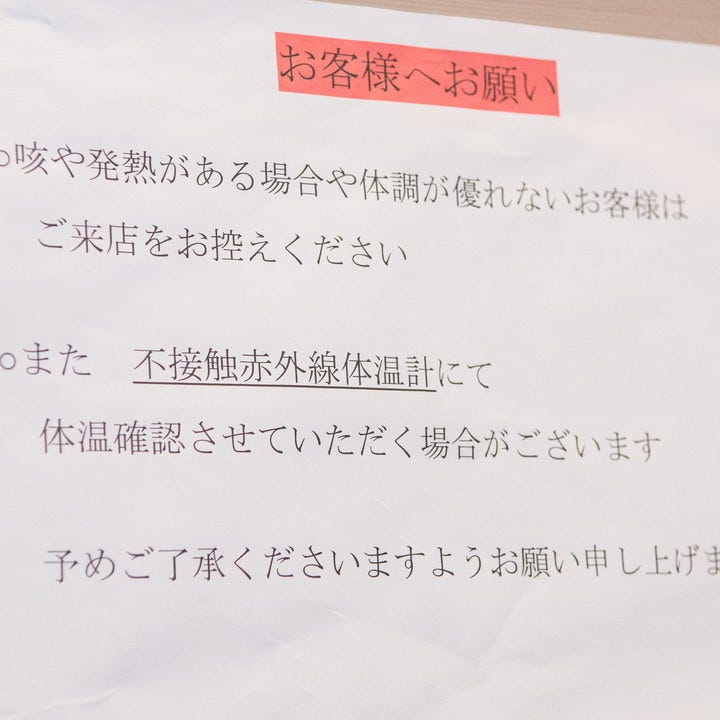 お客様へお願い
○咳や発熱がある場合や体調が優れないお客様は
ご来店をお控えください
○また 不接触赤外線体温計にて
体温確認させていただく場合がございます
予めご了承くださいますようお願い申し上げま